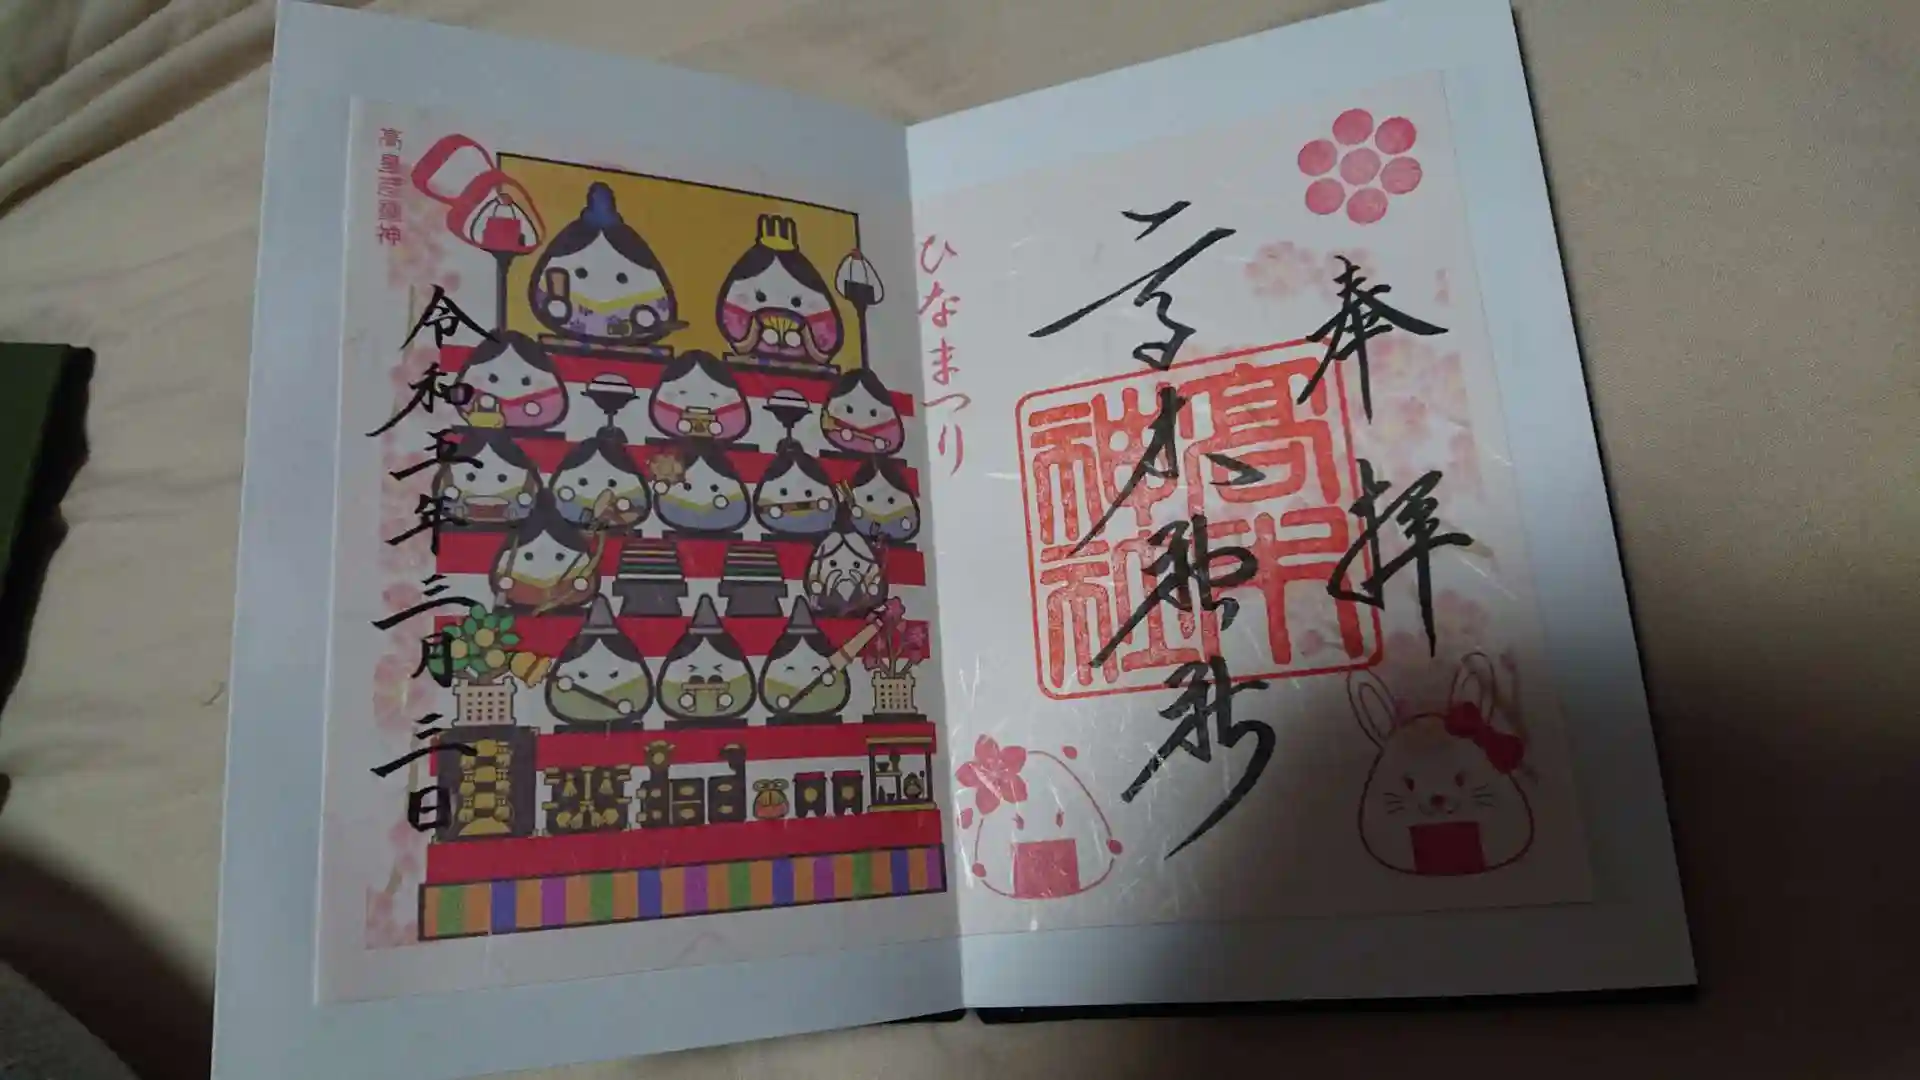 奉拝
高木神社
高木神社
ひなまつり
高皇産霊神
令和五年三月三日